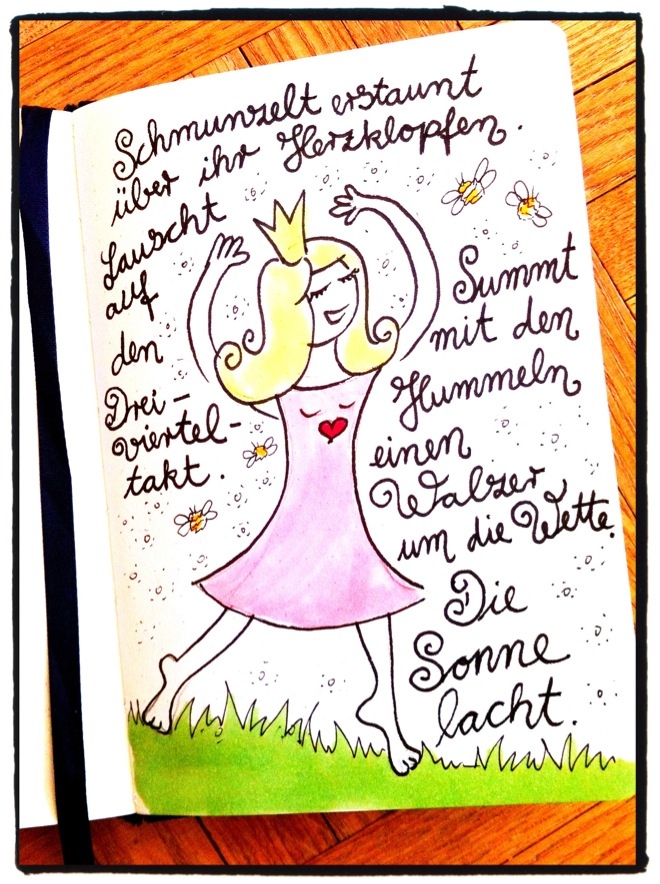 Schmunzelt erstaunt
über ihr Herzklopfen.
Lauscht
auf
den
Drei-
viertel-
takt.
Summt
mit den
Hummeln
einen
Walzer
um die Wette.
Die
Sonne
lacht.